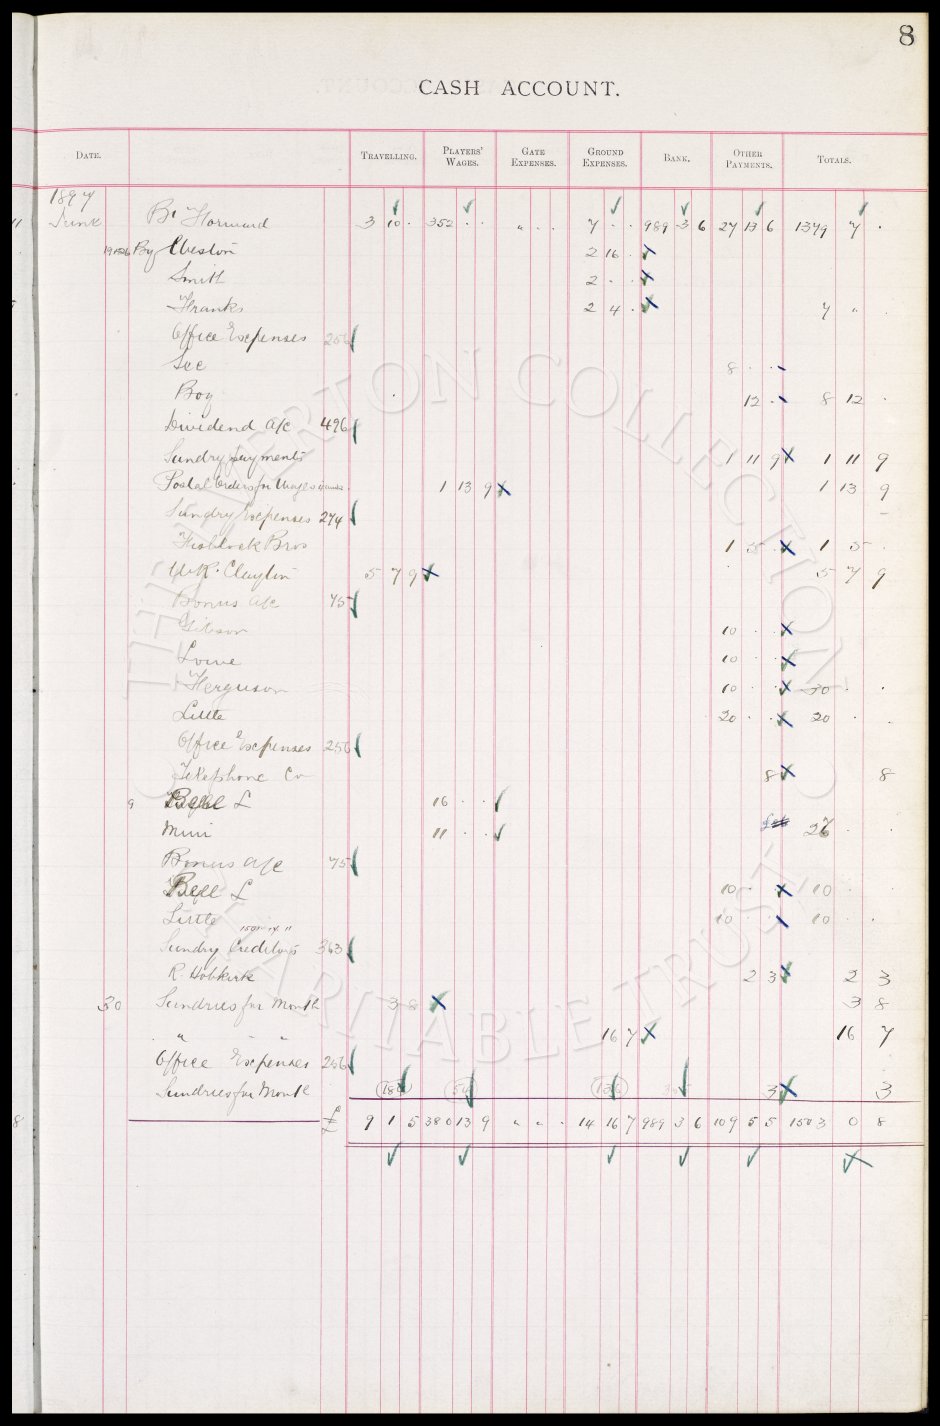 8
CASH ACCOUNT.
DATE. TRAVELLING. PLAYERS' WAGES. GATE EXPENSES. GROUND EXPENSES. BANK. OTHER PAYMENTS. TOTALS.
1897
June Bt Forward 3 10 · 352 · · " · · 7 · · 989 3 6 27 13 6 1379 7 ·
By Cheston 2 16 ·
Smith 2 · ·
Franks 2 4 · 7 " ·
Office Expenses 256
See 8 · ·
Boy 12 · 8 12 ·
Dividend a/c 496
Sundry payments 1 11 9 1 11 9
Postal Orders for Wages 1 13 9 1 13 9
Sundry Expenses 274
Bros 1 5 · 1 5 ·
W.R. Clayton 5 7 9 5 7 9
Bonus a/c 75
Gibson 10 · ·
Lowe 10 · ·
Ferguson 10 · · 30 · ·
Little 20 · · 20 · ·
Office Expenses 256
Telephone Co 8 8
9 Bell L 16 · ·
Muir 11 · · 27 · ·
Bonus a/c 75
Bell L 10 · · 10 · ·
Little 10 · · 10 · ·
Sundry Creditors 363
R. Hobkirk 2 3 2 3
30 Sundries for Month 3 8 3 8
" " " 16 7 16 7
Office Expenses 256
Sundries for Month 3 3
£ 9 1 5 380 13 9 " " · 14 16 7 989 3 6 109 5 5 1503 0 8
THE EVERTON COLLECTION CHARITABLE TRUST